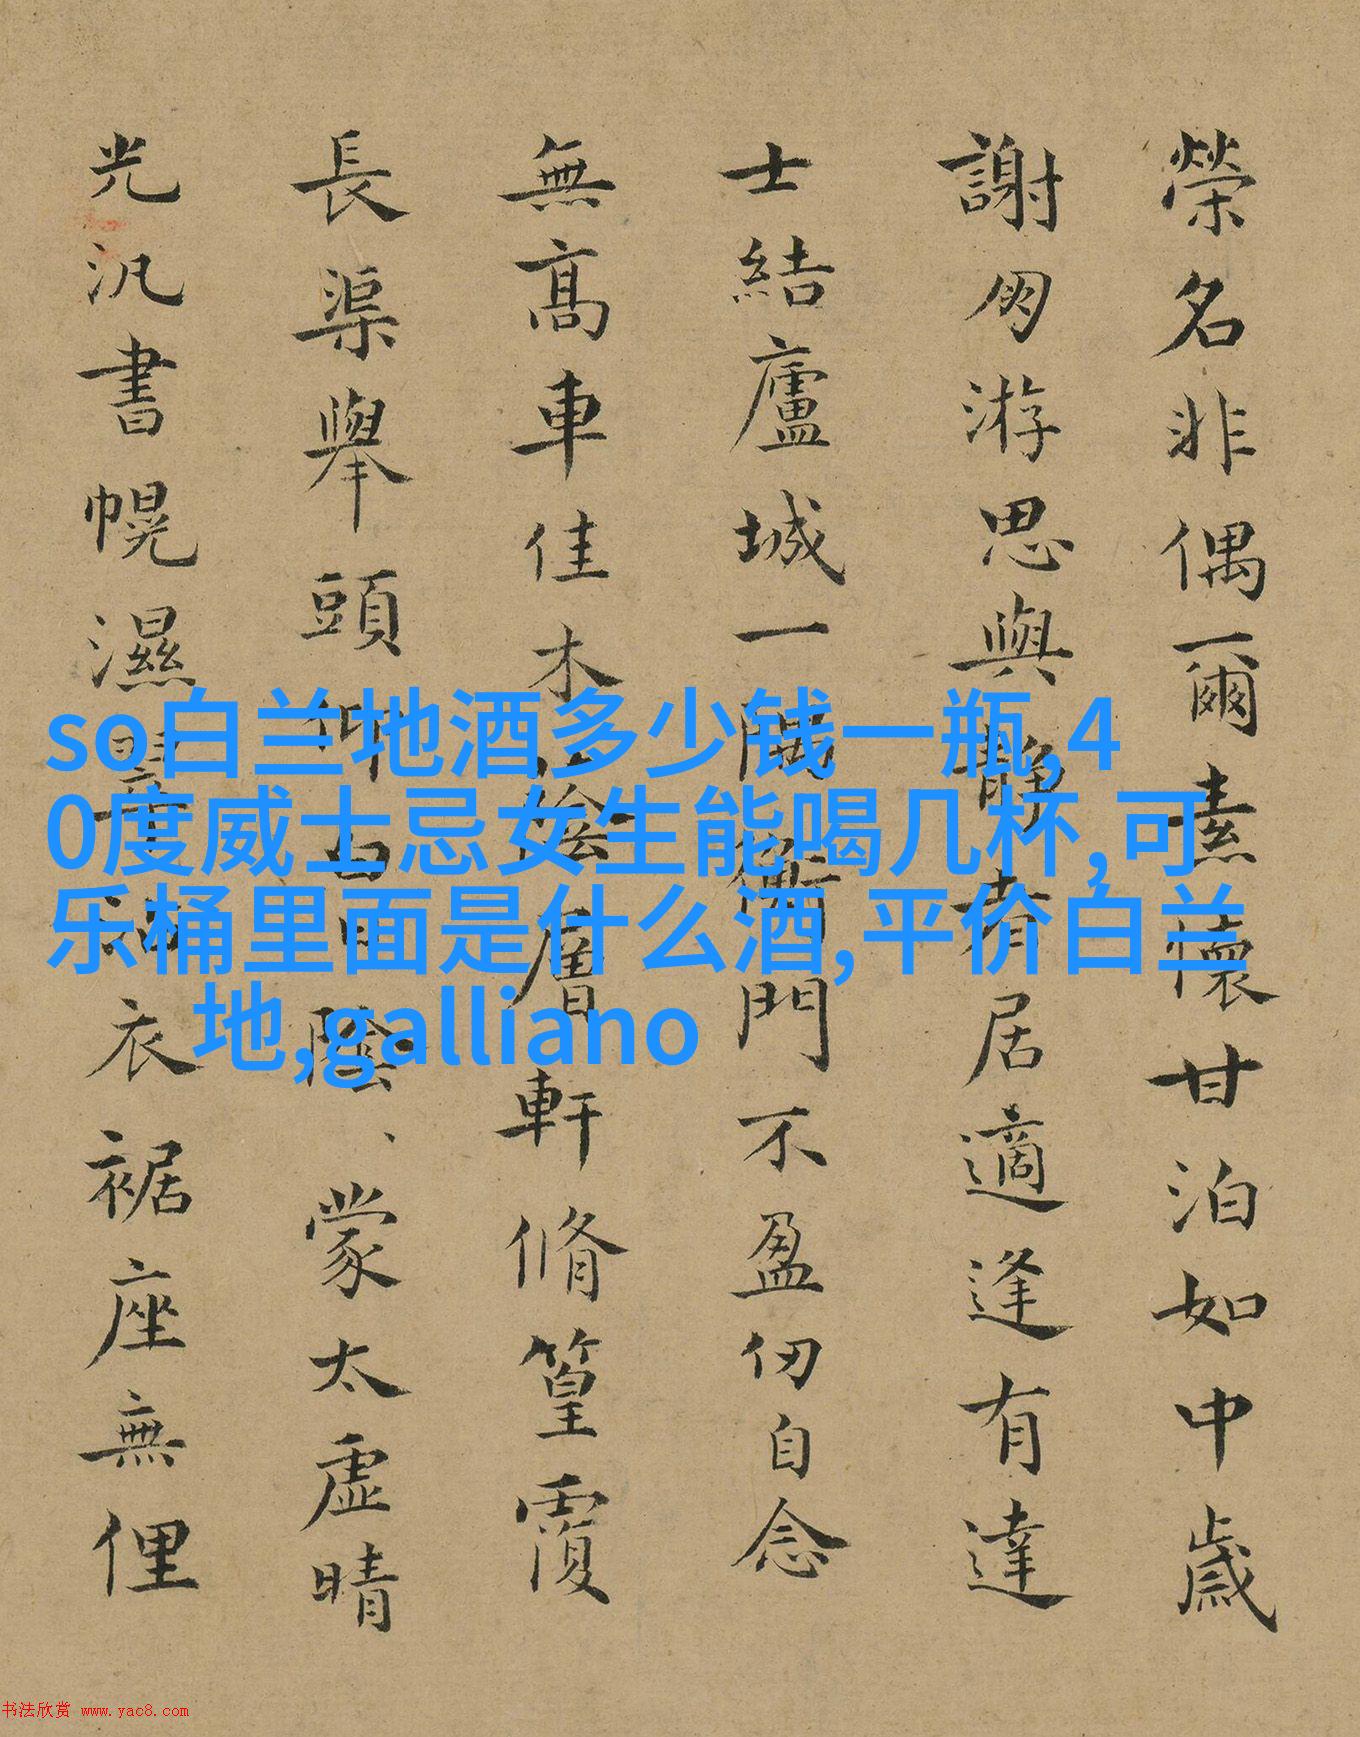 榮名非偶爾素懷甘泊如中歲
謝朋游思與靜者居適逢有達
士結廬城一隅衡門不盈仞自念
無髙車佳木陰層軒脩篁覆
長渠舉頭仰白日陰、蒙太虛晴
光汎書幌濕翠沾衣裾座無俚
so白兰地酒多少钱一瓶,4
0度威士忌女生能喝几杯,可
乐桶里面是什么酒,平价白兰
地,galliano
书法欣赏 www.yac8.com